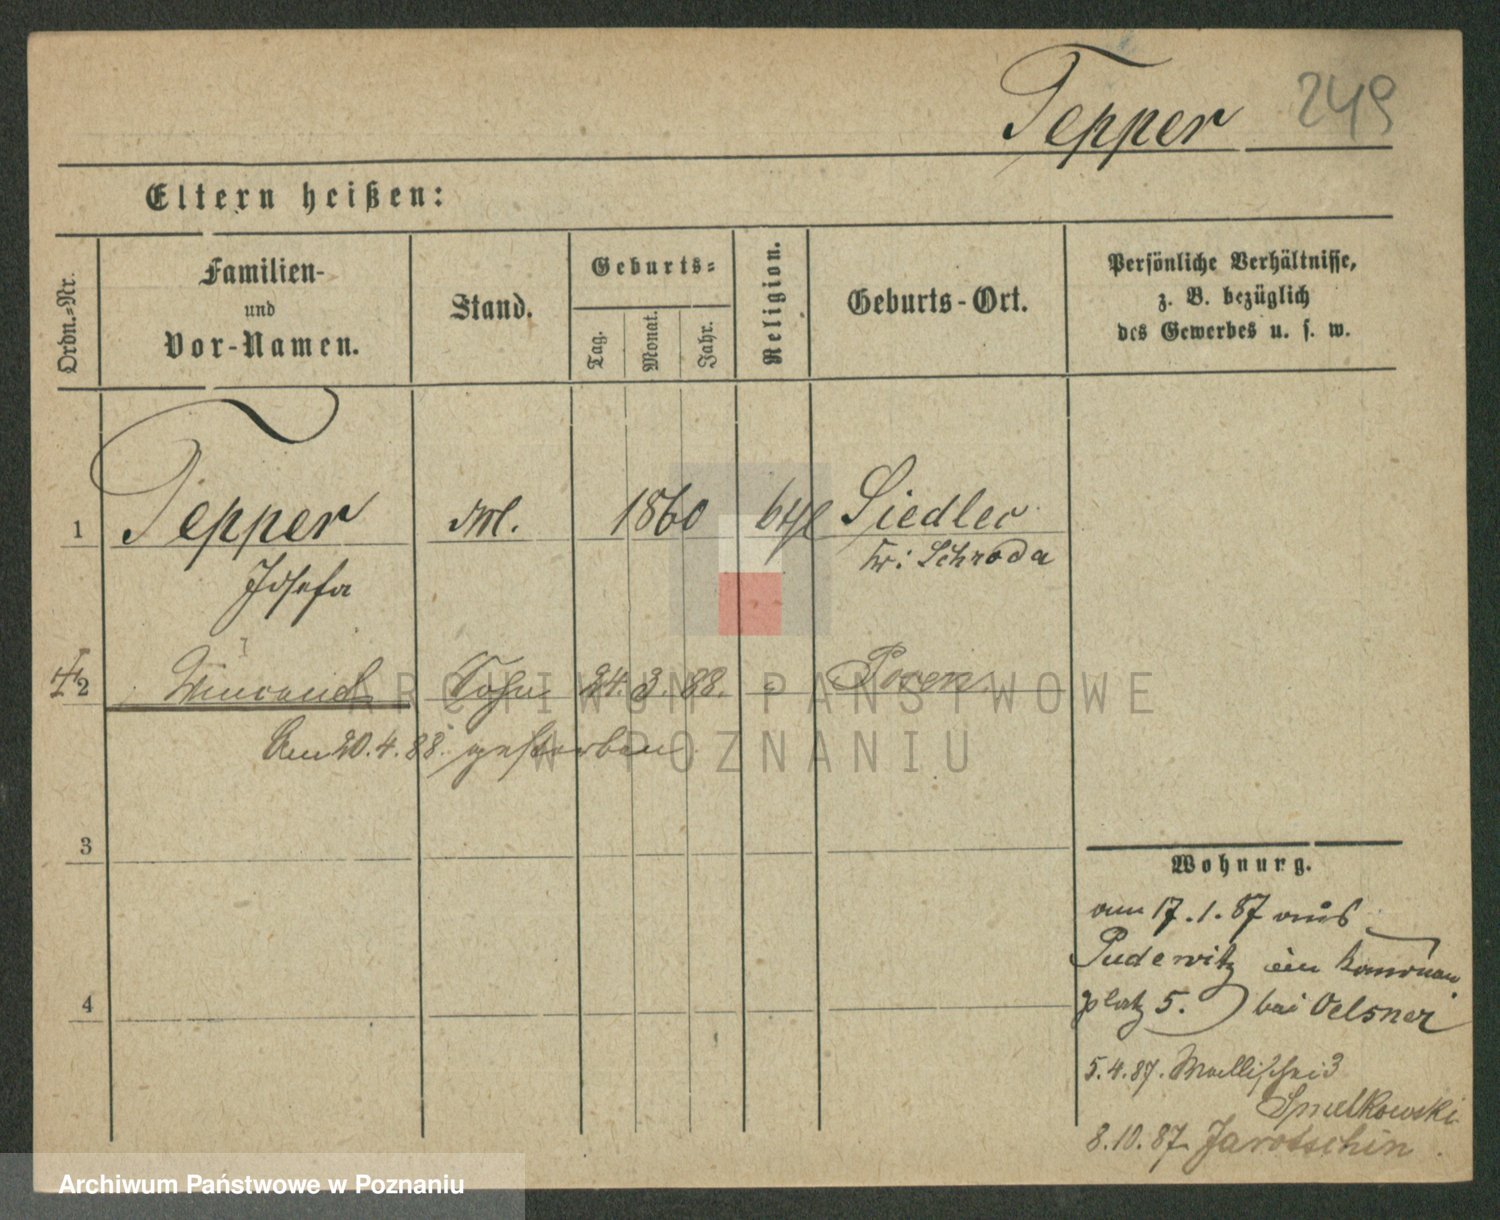 Tepper 249
Eltern heißen:
Ordn.-Nr.
Familien-
und
Vor-Namen.
Stand.
Geburts-
Tag.
Monat.
Jahr.
Religion.
Geburts-Ort.
Persönliche Verhältnisse,
z. B. bezüglich
des Gewerbes u. s. w.
1 Tepper M. 1860 ktl Siedlec
Josefa Kr: Schroda
2 Vincent Sohn 24. 3. 88. Posen
Am 20.4.88. gestorben
ARCHIWUM PAŃSTWOWE
W POZNANIU
3
4
Wohnung.
am 17.1.87 aus
Pudewitz
platz 5. bei Oelsner
5.4.87. Wallischei 3
Smelkowski
8.10.87 Jarotschin
Archiwum Państwowe w Poznaniu